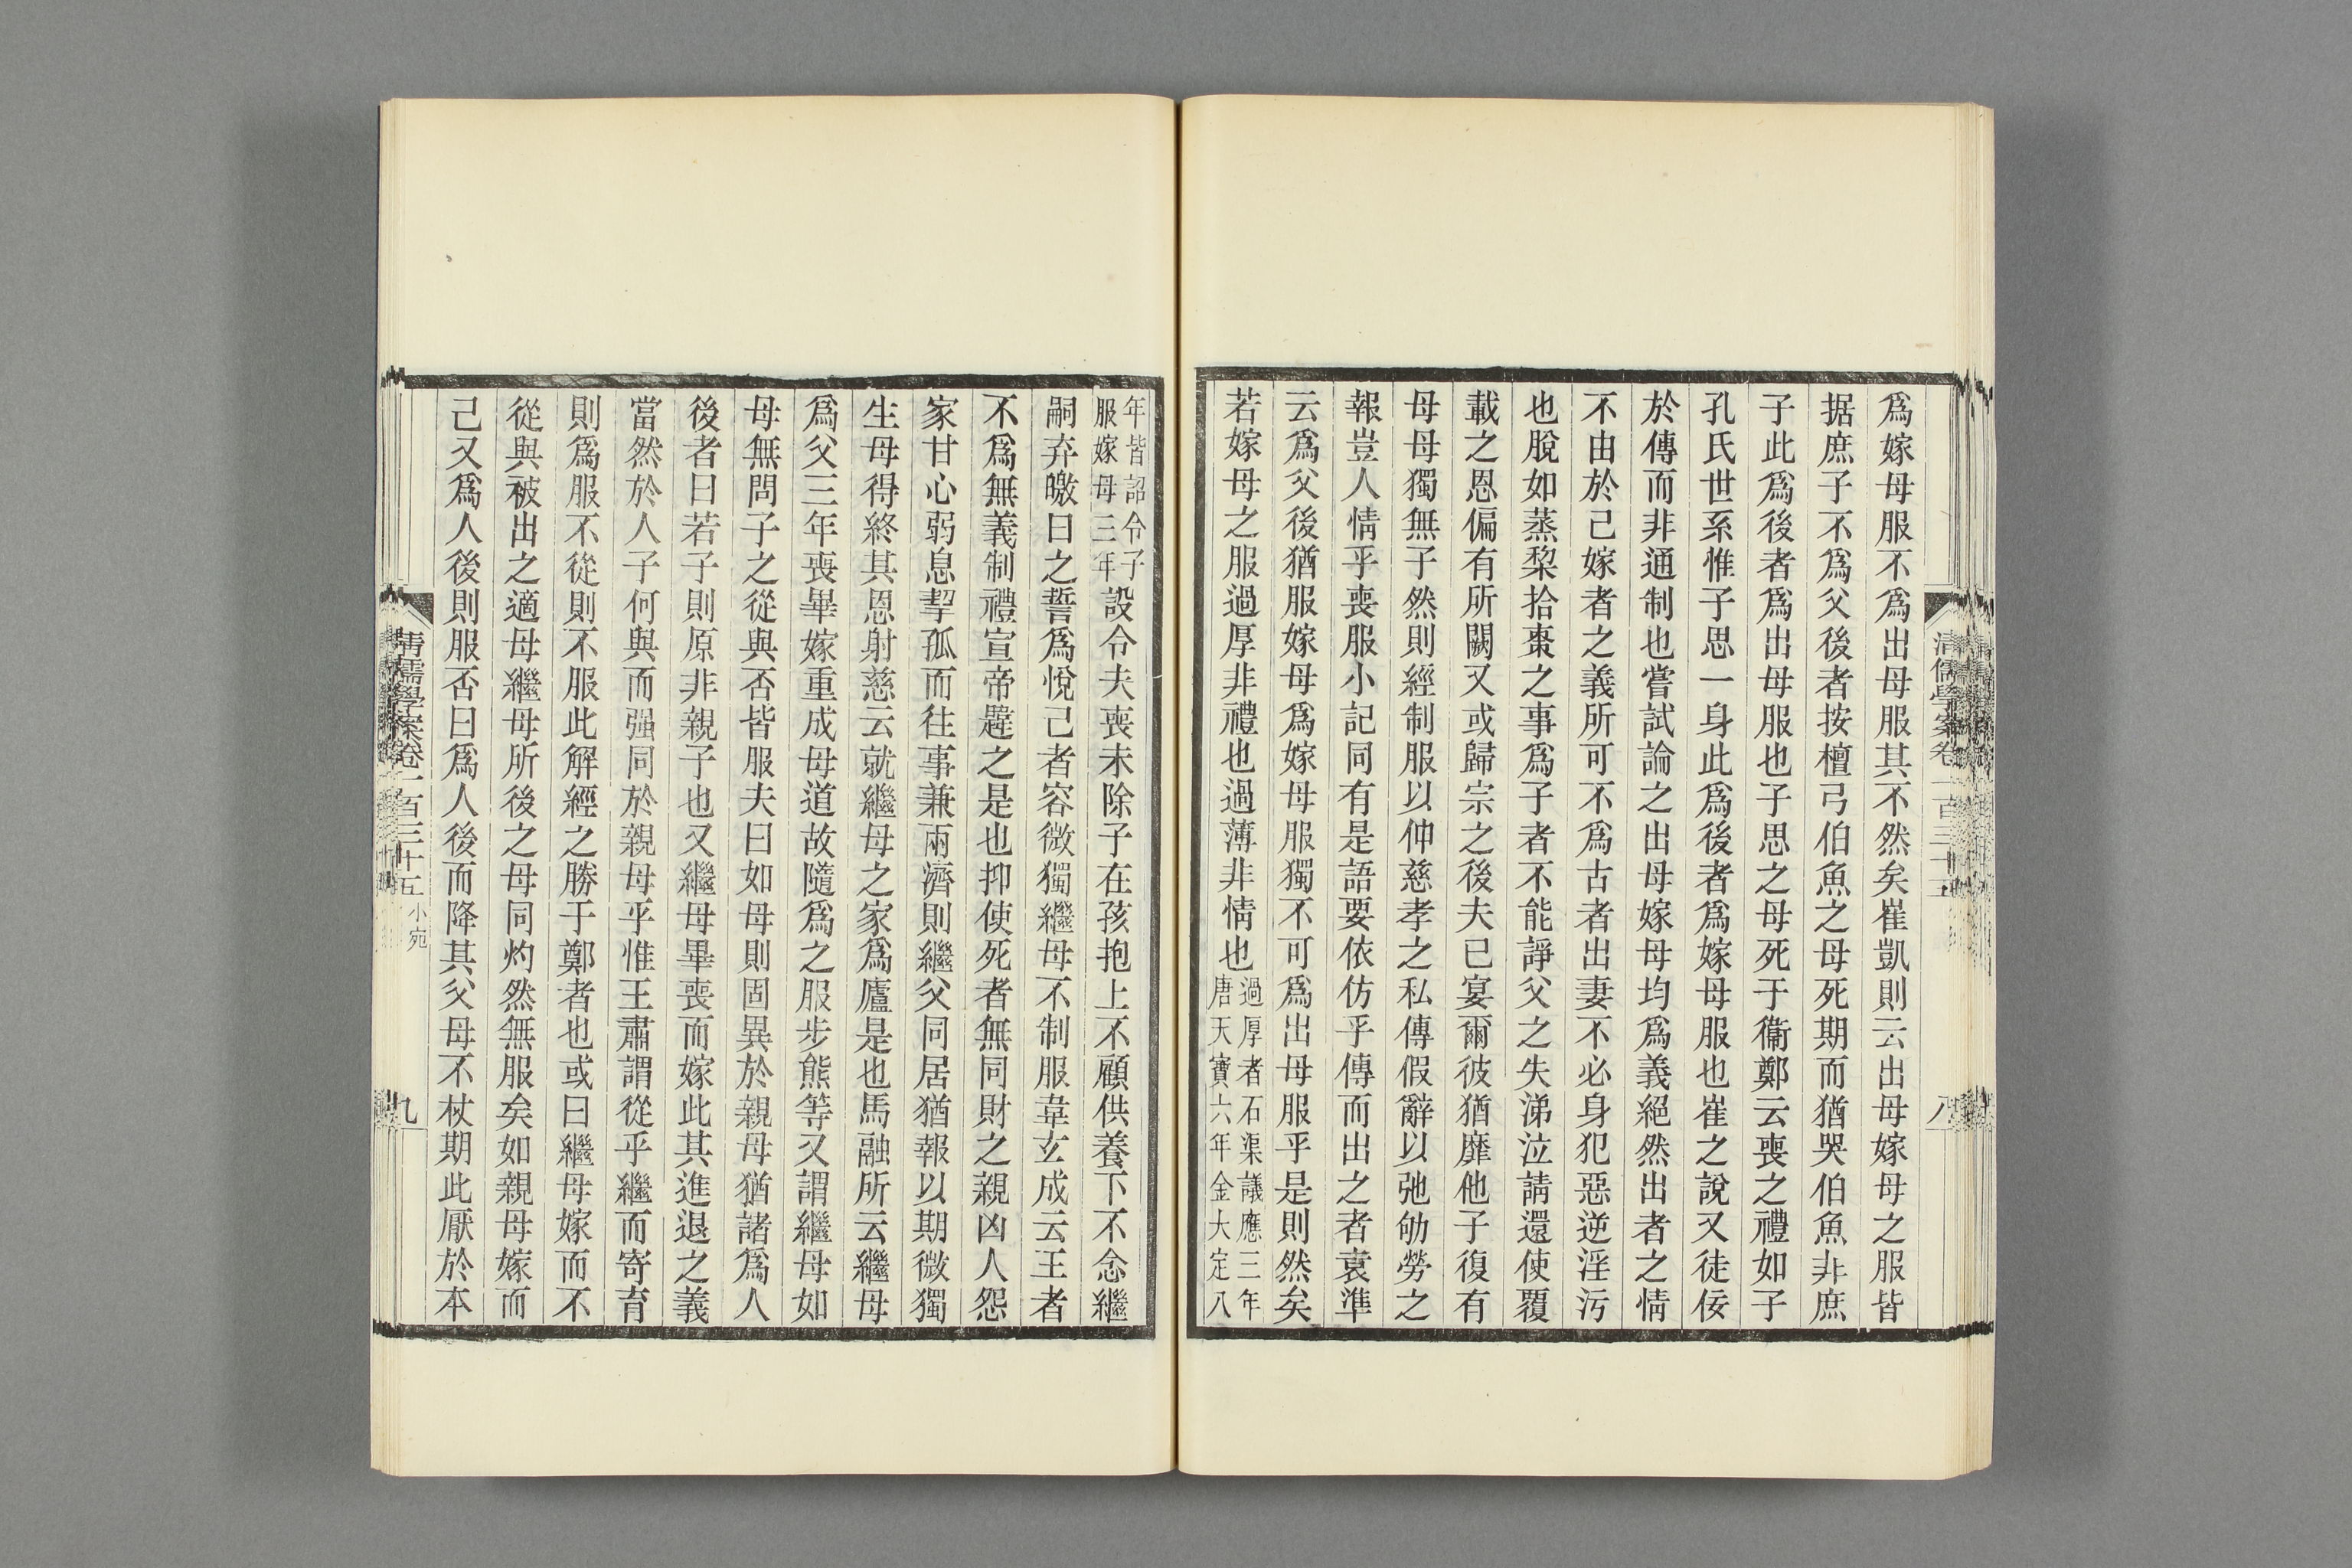 爲嫁母服不爲出母服其不然矣崔凱則云出母嫁母之服皆
据庶子不爲父後者按檀弓伯魚之母死期而猶哭伯魚非庶
子此爲後者爲出母服也子思之母死于衞鄭云喪之禮如子
孔氏世系惟子思一身此爲後者爲嫁母服也崔之說又徒佞
於傳而非通制也嘗試論之出母嫁母均爲義絕然出者之情
不由於己嫁者之義所可不爲古者出妻不必身犯惡逆淫污
也脫如蒸棃拾棗之事爲子者不能諍父之失涕泣請還使覆
載之恩偏有所闕又或歸宗之後夫已宴爾彼猶靡他子復有
母母獨無子然則經制服以伸慈孝之私傳假辭以弛劬勞之
報豈人情乎喪服小記同有是語要依仿乎傳而出之者袁準
云爲父後猶服嫁母爲嫁母服獨不可爲出母服乎是則然矣
若嫁母之服過厚非禮也過薄非情也過厚者石渠議應三年
唐天寶六年金大定八
清儒學案卷一百三十五
八
年皆詔令子
服嫁母三年設令夫喪未除子在孩抱上不顧供養下不念繼
嗣弃曒日之誓爲悅己者容微獨繼母不制服韋玄成云王者
不爲無義制禮宣帝韙之是也抑使死者無同財之親凶人怨
家甘心弱息挈孤而往事兼兩濟則繼父同居猶報以期微獨
生母得終其恩射慈云就繼母之家爲廬是也馬融所云繼母
爲父三年喪畢嫁重成母道故隨爲之服步熊等又謂繼母如
母無問子之從與否皆服夫曰如母則固異於親母猶諸爲人
後者曰若子則原非親子也又繼母畢喪而嫁此其進退之義
當然於人子何與而强同於親母乎惟王肅謂從乎繼而寄育
則爲服不從則不服此解經之勝于鄭者也或曰繼母嫁而不
從與被出之適母繼母所後之母同灼然無服矣如親母嫁而
己又爲人後則服否曰爲人後而降其父母不杖期此厭於本
清儒學案卷一百三十五
小宛
九